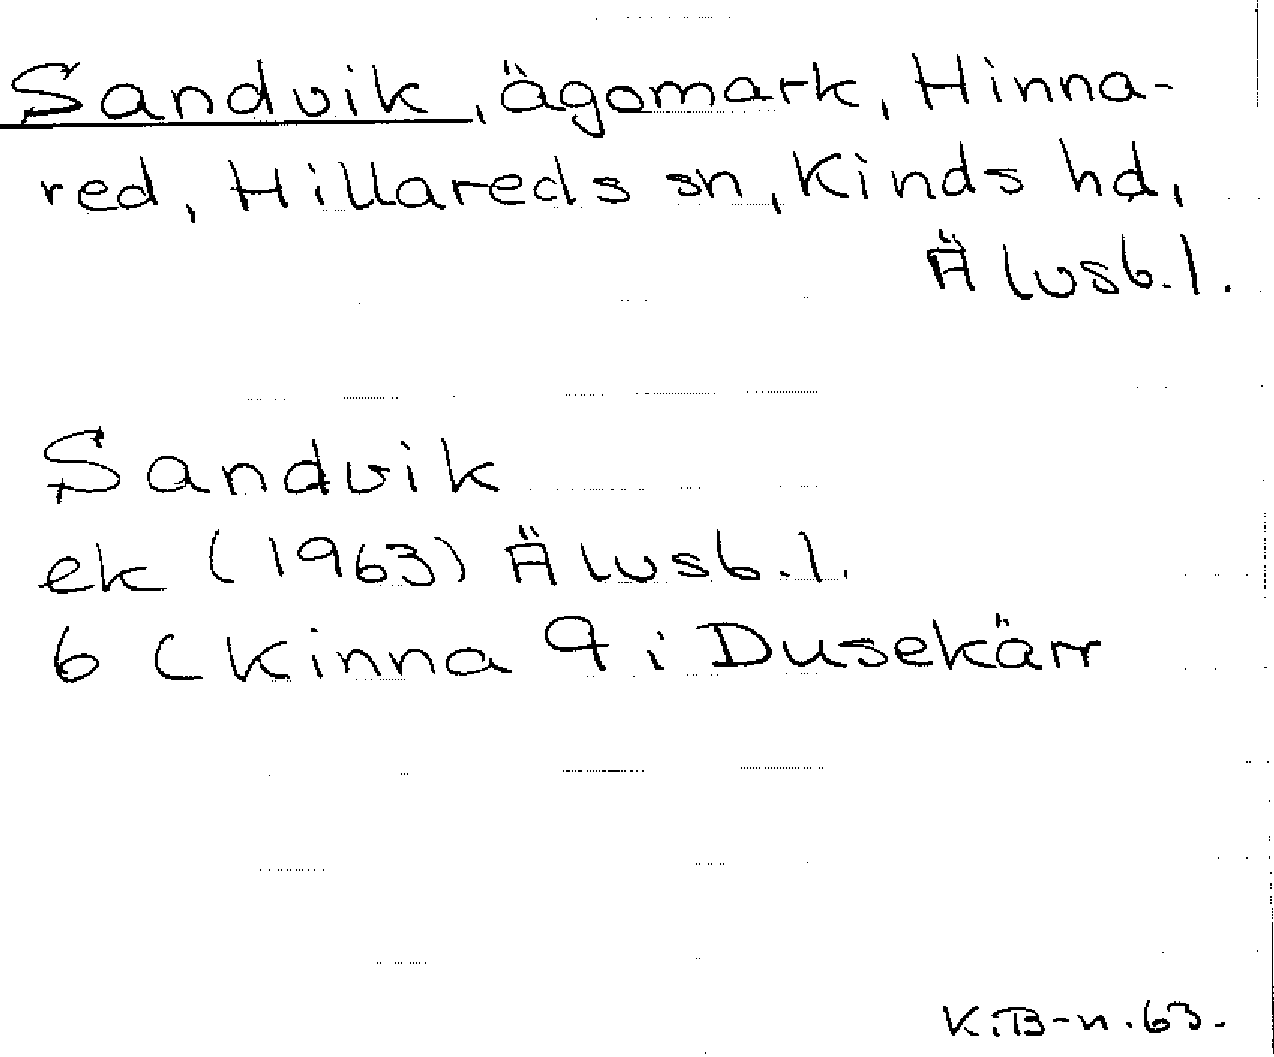 Sandvik, ägomark, Hinna-
red, Hillareds sn, Kinds hd,
Älvsb.l.
Sandvik
ek (1963) Älvsb.l.
6 ( Kinna 9 i Dusekärr
K.B-n.63.